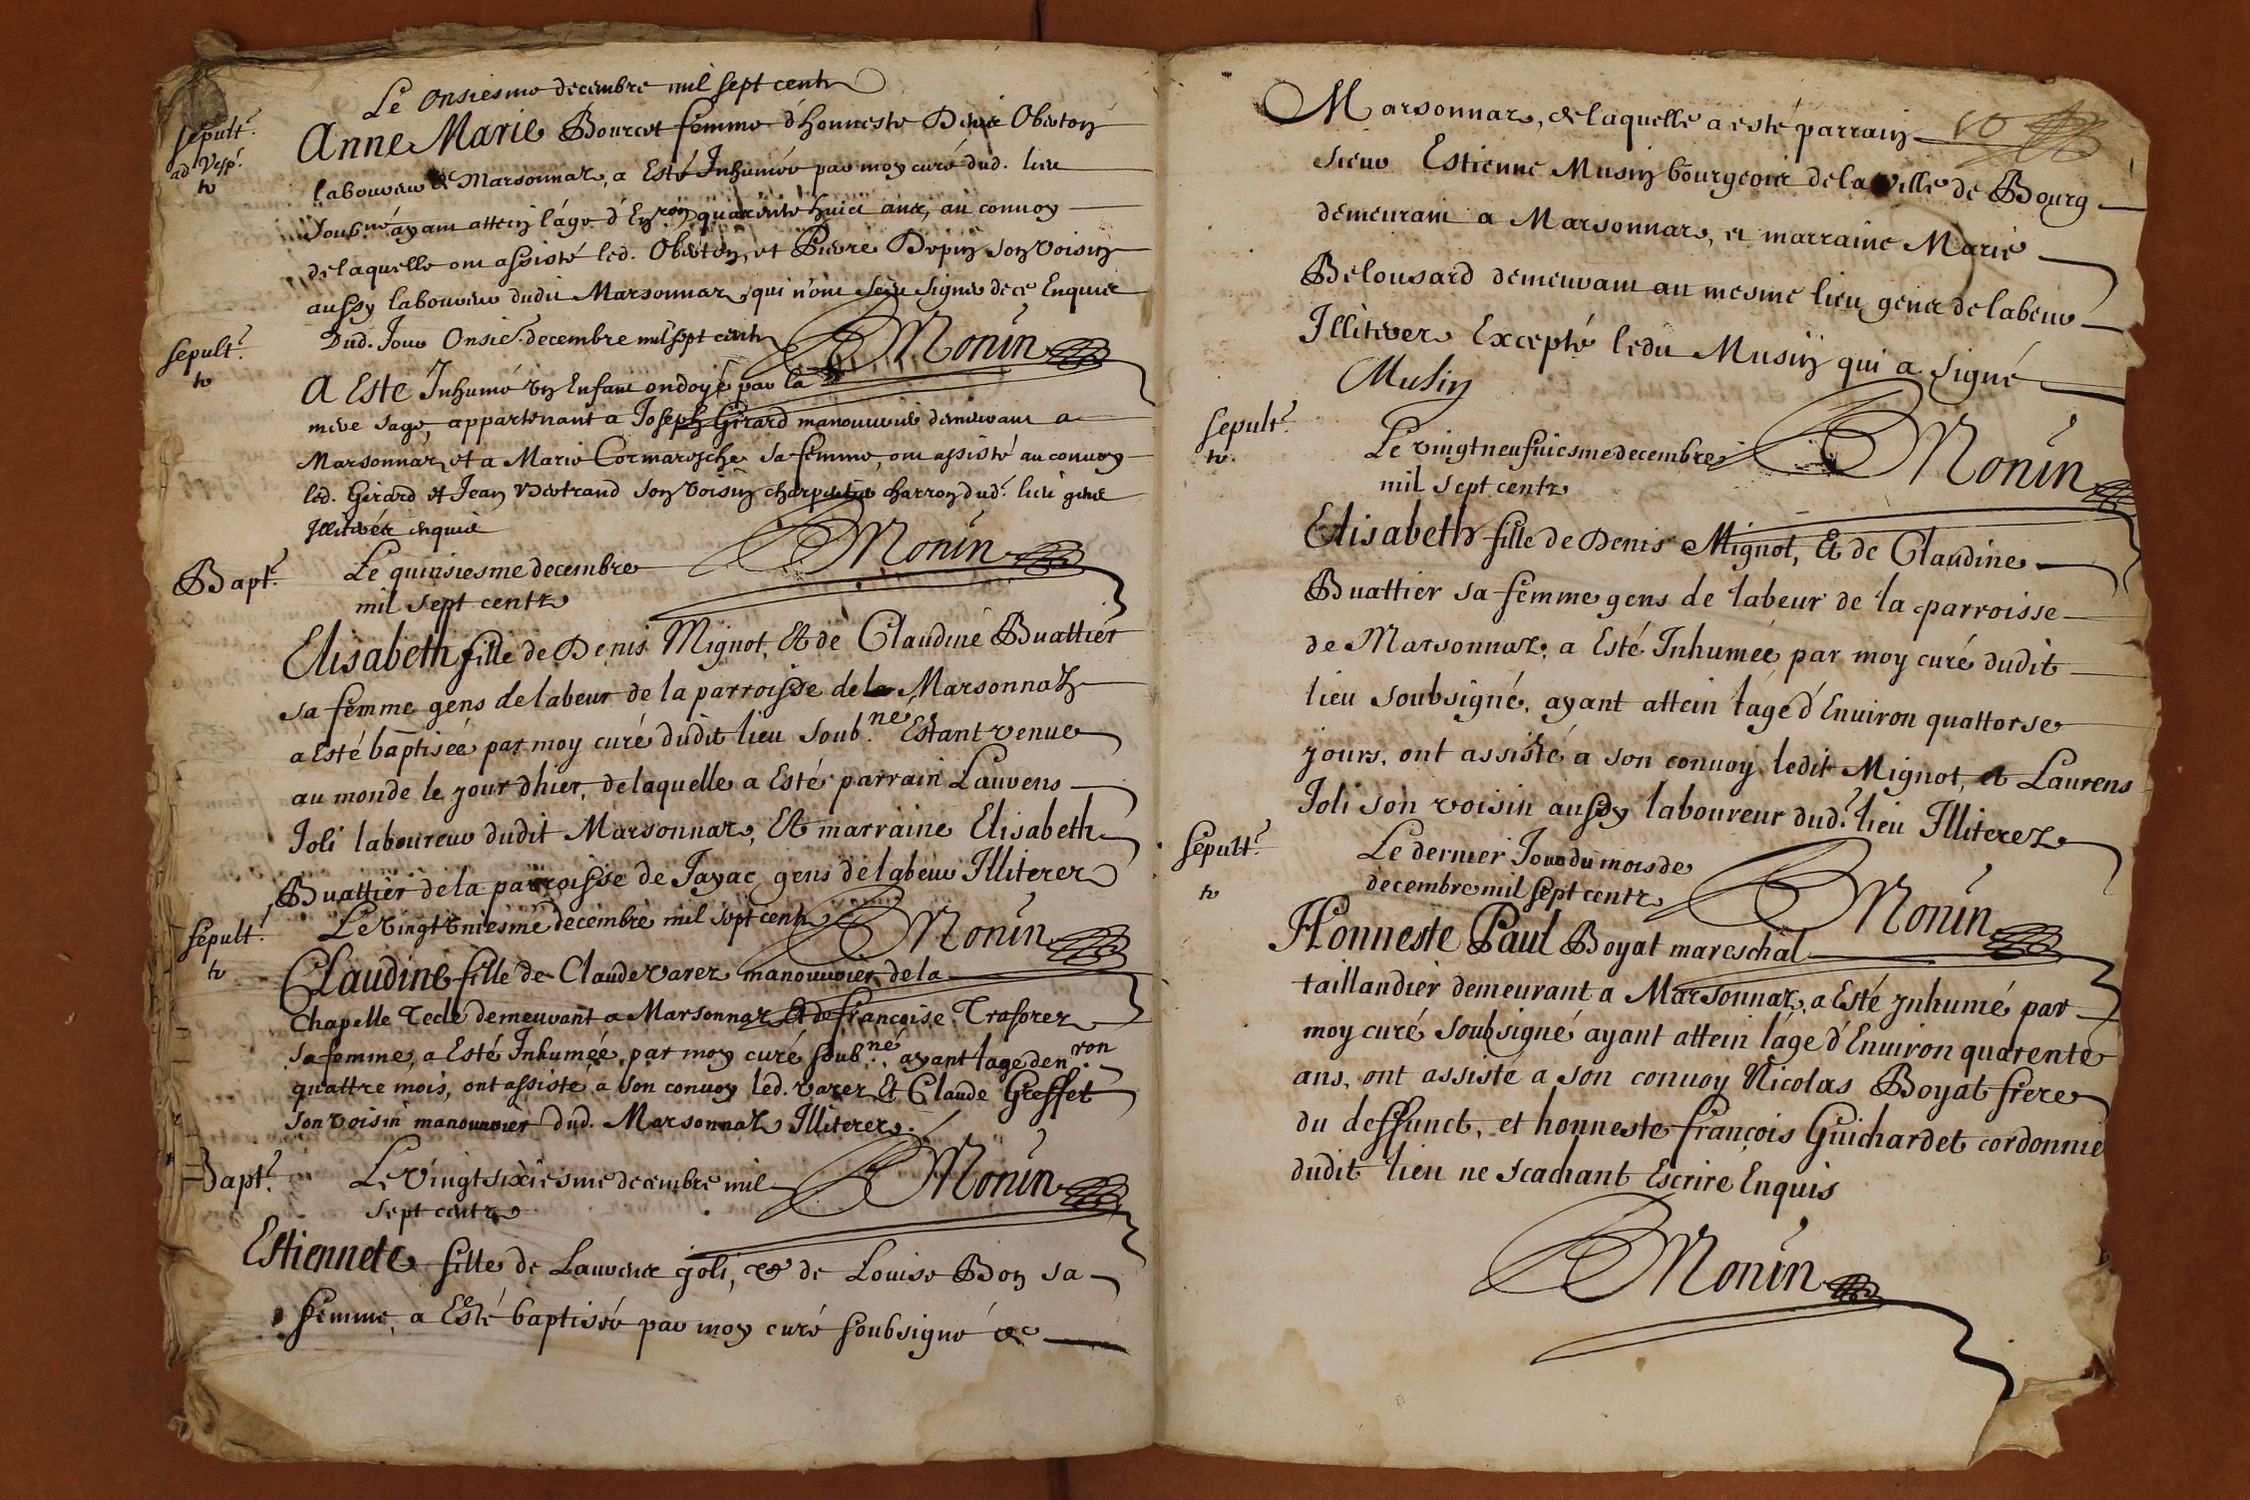 Le Onsiesme decembre mil sept centz
Sepult.re
ad Vesp.
tz
Anne Marie Bourcet femme d'honneste Denis Obeton
laboureur de Marsonnaz, a Esté Inhumée par moy curé dud. lieu
soub.né ayant attein l'age d'En.ron quarente huict ans, au convoy
de laquelle ont assisté led. Obeton, et Pierre Depin son voisin
aussy laboureur dudit Marsonnaz, qui n'ont sceu signer de ce Enquis
Dud. Jour Onsie. decembre mil sept centz
Monin
Sepult.re
tz
A Esté Inhumé un Enfant ondoyé par la
mere sage, appartenant a Joseph Girard manouvrier demeurant a
Marsonnaz, et a Marie Cormaresche sa femme, ont assisté au convoy
led. Girard et Jean Bertrand son voisin charpentier charron dud.t lieu gens
Illiterés enquis
Monin
Bapt.e
Le quinsiesme decembre
mil sept centz
Elisabeth fille de Denis Mignot, Et de Claudine Buattier
sa femme gens de labeur de la parroisse de la Marsonnaz
a Esté baptisée par moy curé dudit lieu soub.né Estant venue
au monde le jour dhier, de laquelle a Esté parrain Laurens
Joli laboureur dudit Marsonnaz, Et marraine Elisabeth
Buattier de la parroisse de Jayac gens de labeur Illiterez
Monin
Sepult.re
tz
Le vingt uniesme decembre mil sept centz
Claudine fille de Claude varez manouvrier de la
Chapelle Tecle demeurant a Marsonnaz Et de françoise Trasorez
sa femme, a Esté Inhumée par moy curé soub.né ayant l'age d'en.ron
quattre mois, ont assisté a son convoy led. varez Et Claude Greffet
son voisin manouvrier dud. Marsonnaz Illiterez.
Monin
Bapt.e
Le Vingt sixiesme decembre mil
sept centz
Estiennete fille de Laurens joli, & de Louise Bon sa
femme, a Esté baptisée par moy curé soubsigné de
Marsonnaz, de laquelle a esté parrain
sieur Estienne Musin bourgeois de la ville de Bourg
demeurant a Marsonnaz, et marraine Marie
Belousard demeurant au mesme lieu gens de labeur
Illiterez Excepté ledit Musin qui a signé
Musin
Monin
Sepult.re
tz
Le vingt neufviesme decembre
mil sept centz
Elisabeth fille de Denis Mignot, Et de Claudine
Buattier sa femme gens de labeur de la parroisse
de Marsonnaz, a Esté Inhumée par moy curé dudit
lieu soubsigné, ayant attein l'age d'Environ quattorse
jours, ont assisté a son convoy ledit Mignot, et Laurens
Joli son voisin aussy laboureur dud.t lieu Illiterez
Monin
Sepult.re
tz
Le dernier Jour du mois de
decembre mil sept centz
Honneste Paul Boyat mareschal
taillandier demeurant a Marsonnaz, a Esté Inhumé par
moy curé soubsigné ayant attein l'age d'Environ quarente
ans, ont assisté a son convoy Nicolas Boyat frere
du deffunct, et honneste françois Guichardet cordonnie
dudit lieu ne scachant Escrire Enquis
Monin